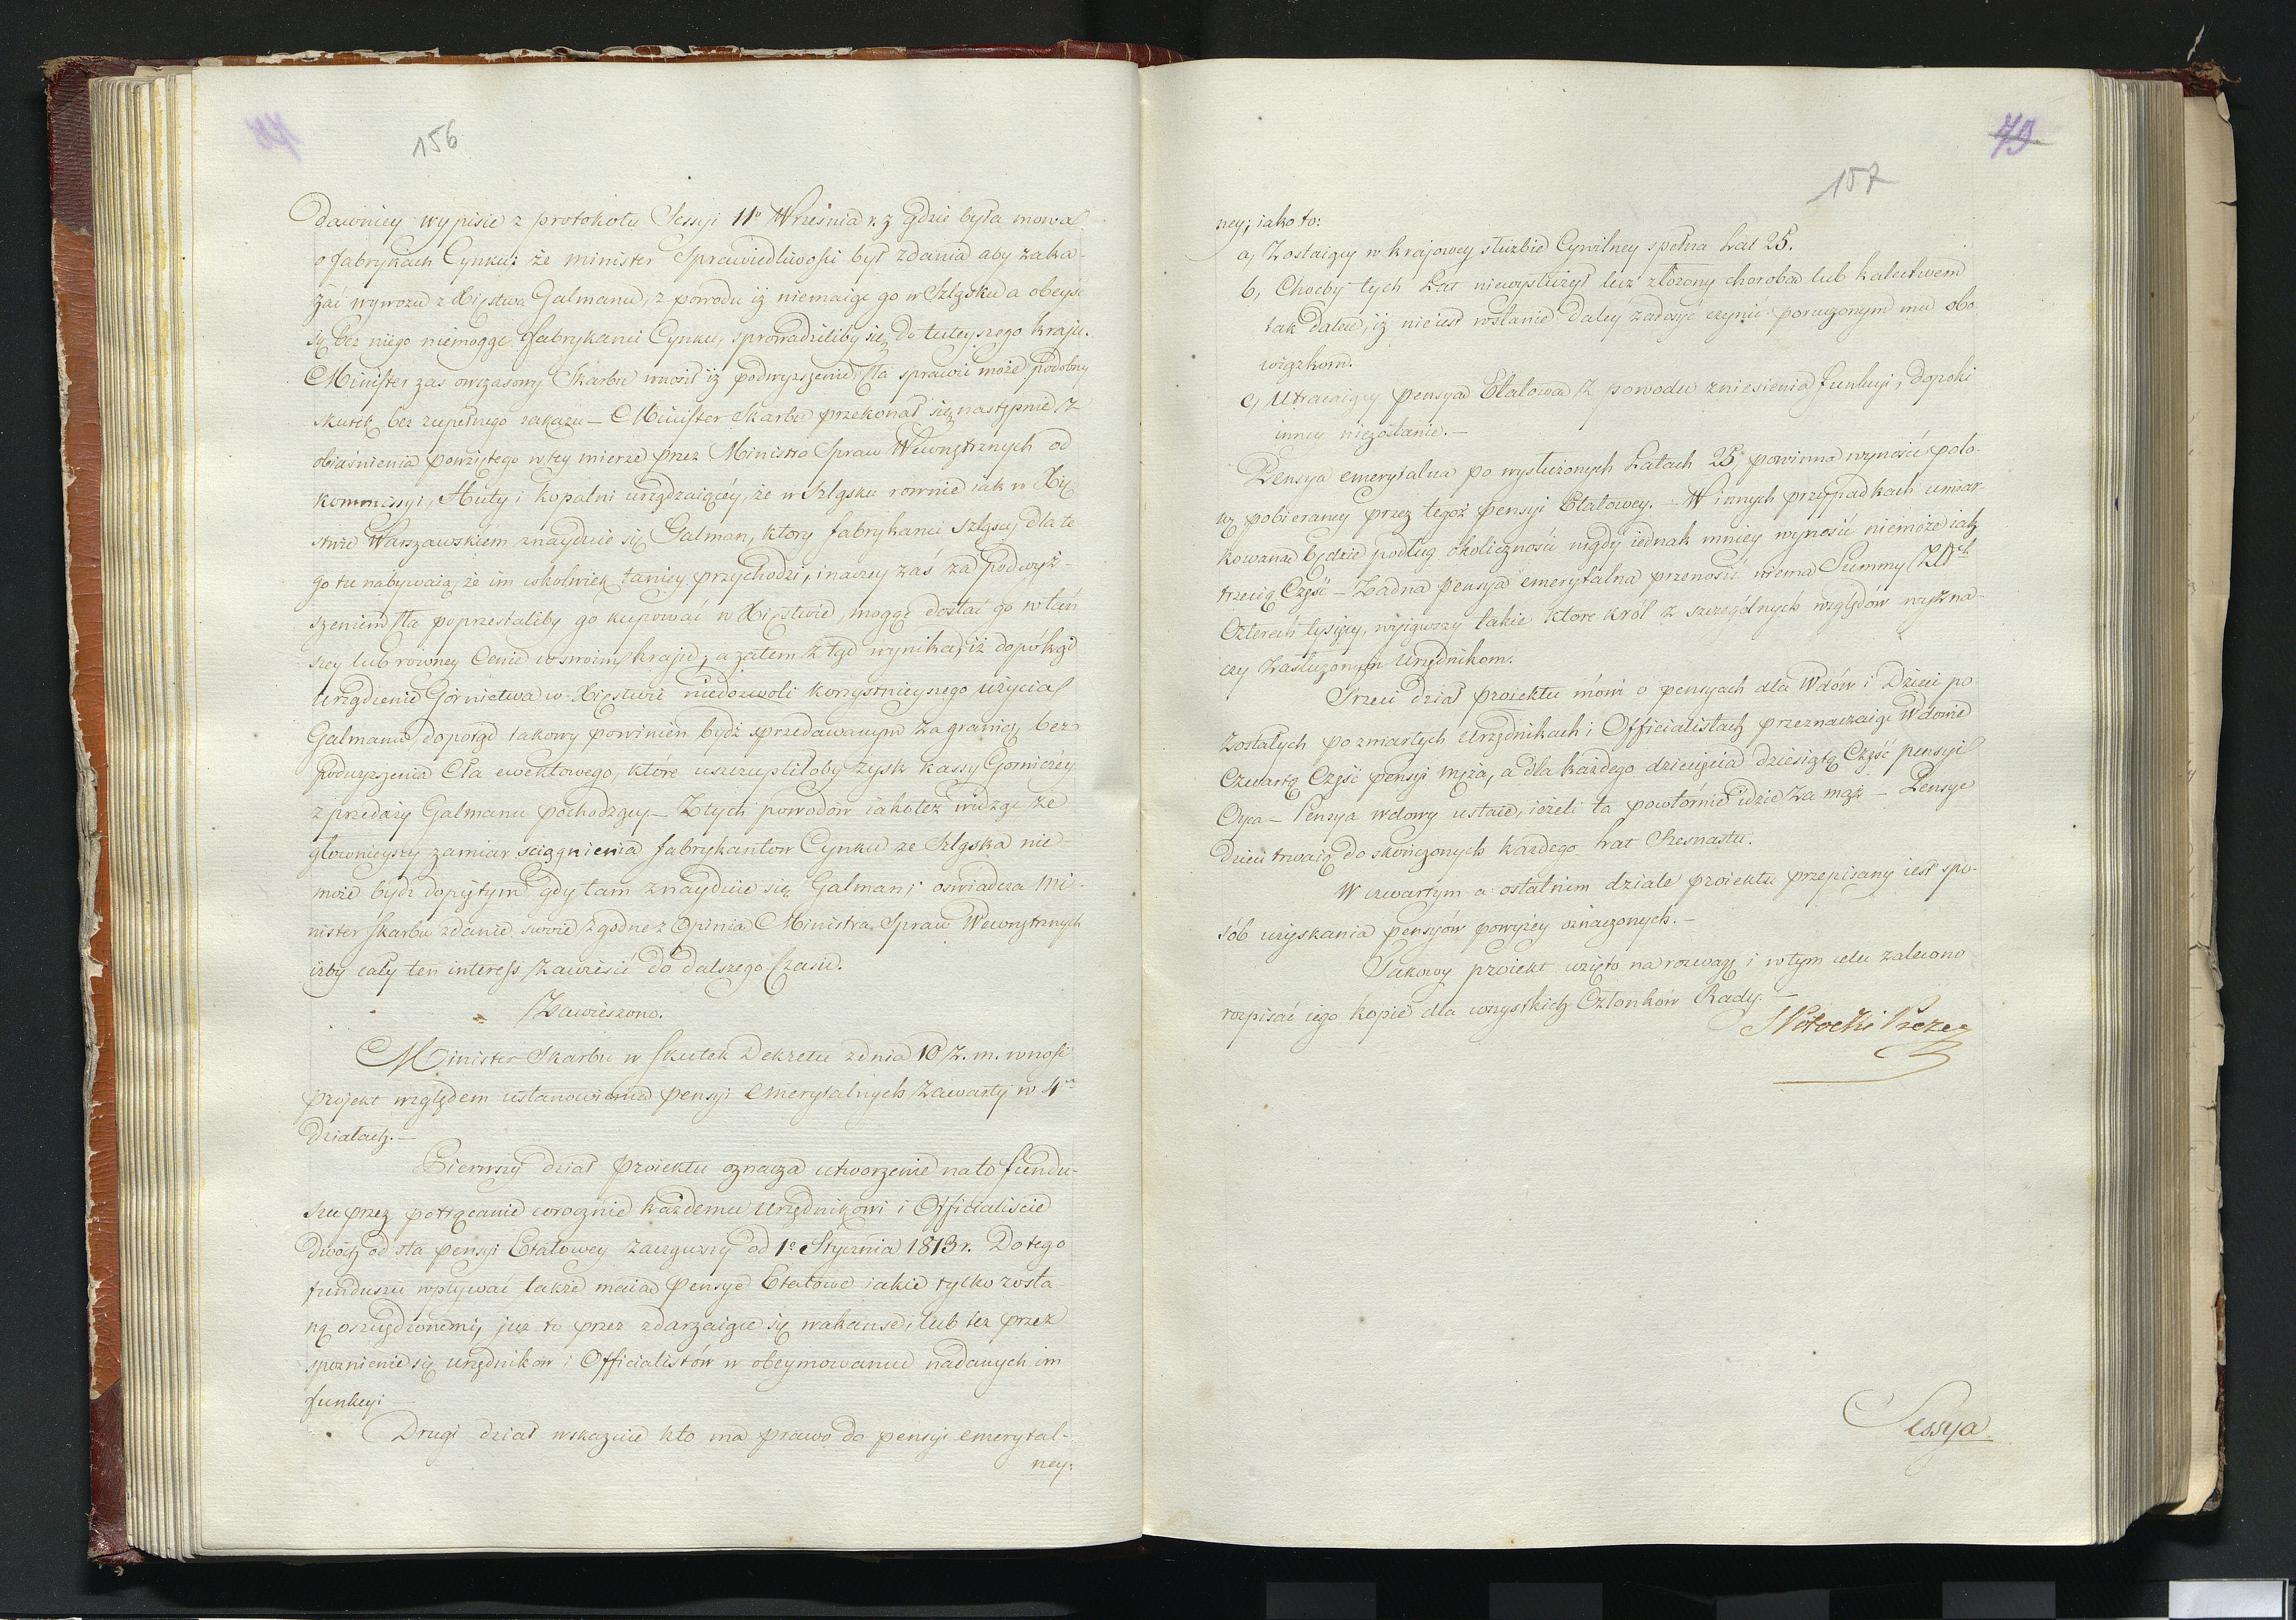 156
dawniey wypisie z protokołu Sessyi 11º Września r. z. gdzie była mowa
o fabrykach Cynku: że minister Sprawiedliwości był zdania aby zaka-
zać wywozu z Xięstwa Galmanu, z powodu iż niemaiąc go w Szląsku a obeyść
się bez niego niemogąc fabrykanci Cynku, sprowadziliby się do tuteyszego kraju.
Minister zas owczasowy Skarbu wnosił iż podwyższenie Cła sprawić może podobny
skutek bez zupełnego zakazu – Minister Skarbu przekonał się następnie z
obiaśnienia powziętego w tey mierze przez Ministra Spraw Wewnętrznych od
kommissyi, Huty i kopalni urządzaiącéy, że w Szląsku rownie iak w Xię-
stwie Warszawskiém znayduie się Galman, ktory fabrykanci Szląscy dla te
go tu nabywaią, że im cokolwiek taniey przychodzi, inaczey zaś za podwyż-
szeniem Cła poprzestaliby go kupować w Xięstwie, mogąc dostać go w tań
szey lub rowney Cenie w swoim kraju; a zatem z tąd wynika, iż dopókąd
urządzenie Górnictwa w Xięstwie niedozwoli korzystnieyszego użycia
Galmanu dopotąd takowy powinien bydź sprzedawanym za granicę bez
podwyższenia Cła ewektowego, które uszczupliłoby zysk kassy Górniczéy
z przedaży Galmanu pochodzący. – Z tych powodów iakoteż widząc że
głownieyszy zamiar sciągnienia fabrykantow Cynku ze Szląska nie
może bydz dopiętym gdy tam znayduie się Galman; oswiadcza Mi-
nister Skarbu zdanie swoie zgodne z Opinia Ministra Spraw Wewnętrznych
iżby cały ten interess zawiesić do dalszego Czasu.
Zawieszono.
Minister Skarbu w skutek Dekretu z dnia 10 z. m. wnosi
projekt względem ustanowienia pensyi emerytalnych zawarty w 4ch
działach. –
Pierwszy dział proiektu oznacza utworzenie na to fundu-
szu przez potrącanie corocznie każdemu urzędnikowi i Officialiscie
dwóch od sta pensyi Etatowey zacząwszy od 1º Stycznia 1813 r. Do tego
funduszu wpływać także maia Pensye Etatowe iakie tylko zosta
ną oszczędzonemi, juz to przez zdarzaiące się wakanse, lub tez przez
spoznienie się urzędników i Officialistów w obeymowaniu nadanych im
funkcyi
Drugi dział wskazuie kto ma prawo do pensyi emerytal-
ney:
79
157
ney; iako to:
a, Zostaiący w krajowey służbie Cywilney spełna Lat 25.
b, Choćby tych Lat niewysłużył lecz złożony choroba lub kalectwem
tak dalece, iż nieiest wstanie daley zadosyć czynić poruczonym mu obo
wiązkom.
c, Utracaiący pensya Etatowa z powodu zniesienia funkcyi, dopóki
inney niezostanie. –
Pensya emerytalna po wysłużonych Latach 25 powinna wynosić poło-
wę pobieraney przez tegoż pensyi Etatowey. – W innych przypadkach umiar-
kowana będzie podług okoliczności nigdy iednak mniey wynosić niemoże iak
trzecią Część – Żadna pensya emerytalna przenosić niema Summy Złch
Czterech tysięcy, wyiąwszy takie ktore król z szczególnych względów wyzna-
czy zasłuzonym urzędnikom.
Trzeci dział proiektu mówi o pensyach dla Wdów i Dzieci po
zostałych po zmarłych urzędnikach i Officialistach przeznaczaiąc Wdowie
Czwartą Część pensyi męża, a dla każdego dziecięcia dziesiątą Część pensyi
Oyca – Pensya wdowy ustaie, ieżeli ta powtórnie idzie za mąż – Pensye
dzieci trwaią do skończonych każdego Lat Szesnastu.
W czwartym a ostatnim dziale proiektu przepisany iest spo-
sób uzyskania pensyów powyżey oznaczonych. –
Takowy proiekt wzięto na rozwagę i w tym celu zalecono
rozpisać iego kopiie dla wszystkich Członków Rady. –
S Potocki Preze
Sessya.